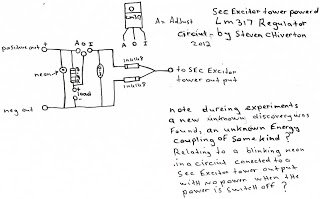 Sec Excitor tower powerd
Lm317 Regulator
Circuit - by Steven Chiverton
2012
Lm317
A= Adjust
A O I
positive out +
A O I
neon
1n4148
1n4148
to SEC Excitor
tower output
+
load
-
neg out
note dureing experiments
a new unknown discovery was
found, an unknown Energy
coupling of some kind ?
Relating to a blinking neon
in a circiut connected to a
Sec Excitor tower output
with no power when the
power is switch off ?